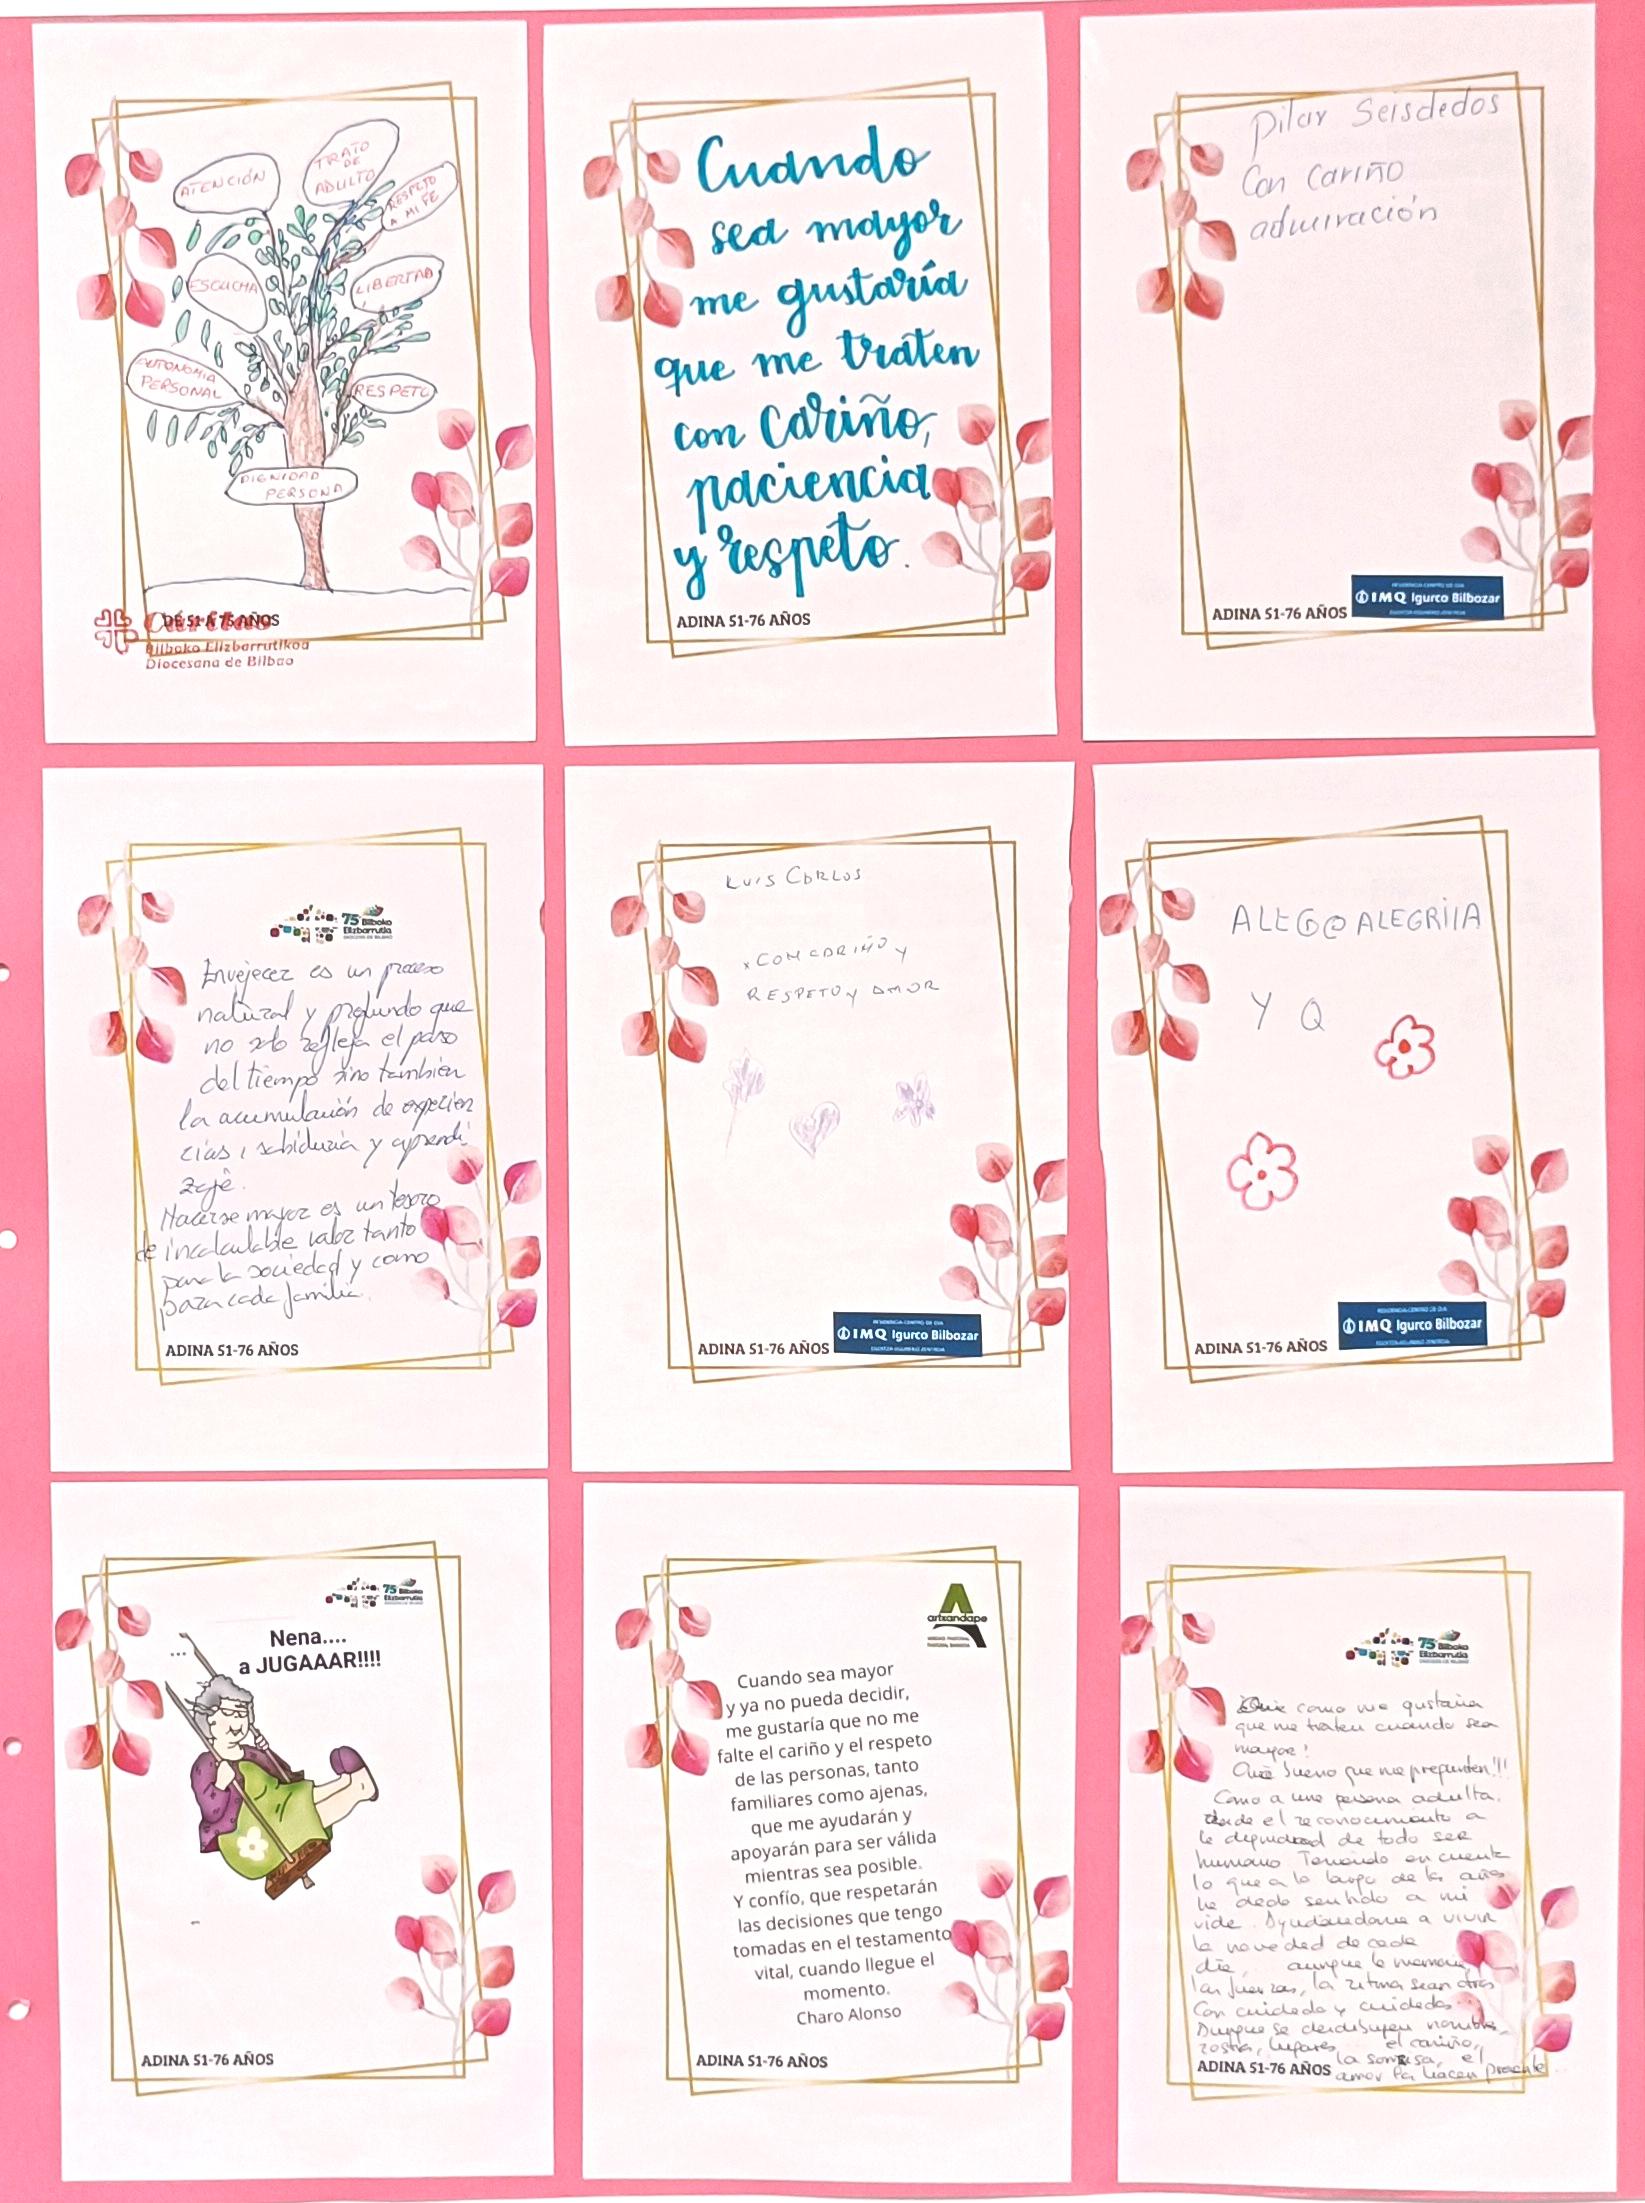 ATENCIÓN
TRATO
DE
ADULTO
RESPETO
A MI FE
ESCUCHA
LIBERTAD
AUTONOMIA
PERSONAL
RESPETO
DIGNIDAD
PERSONA
DE 51 A 75 AÑOS
Bilboko Elizbarrutikoa
Diocesana de Bilbao
Cuando
sea mayor
me gustaría
que me traten
con cariño,
paciencia
y respeto.
ADINA 51-76 AÑOS
Pilar Seisdedos
Con cariño
admiración
ADINA 51-76 AÑOS
IMQ Igurco Bilbozar
75 Bilboko
Elizbarrutia
Envejecer es un proceso
natural y profundo que
no solo refleja el paso
del tiempo sino también
la acumulación de experien
cias, sabiduría y aprendi
zaje.
Hacerse mayor es un tesoro
de incalculable valor tanto
para la sociedad y como
para cada familia.
ADINA 51-76 AÑOS
LUIS CARLOS
x CON CARIÑO y
RESPETO y AMOR
ADINA 51-76 AÑOS
IMQ Igurco Bilbozar
ALEGRIIA
Y Q
ADINA 51-76 AÑOS
RESIDENCIA-CENTRO DE DIA
IMQ Igurco Bilbozar
75 Bilboko
Elizbarrutia
...
Nena....
a JUGAAAR!!!!
ADINA 51-76 AÑOS
artxandape
Cuando sea mayor
y ya no pueda decidir,
me gustaría que no me
falte el cariño y el respeto
de las personas, tanto
familiares como ajenas,
que me ayudarán y
apoyarán para ser válida
mientras sea posible.
Y confío, que respetarán
las decisiones que tengo
tomadas en el testamento
vital, cuando llegue el
momento.
Charo Alonso
ADINA 51-76 AÑOS
75 Bilboko
Elizbarrutia
como me gustaría
que me traten cuando sea
mayor!
Qué bueno que me pregunten!!!
Como a una persona adulta.
desde el reconocimiento a
la dignidad de todo ser
humano Teniendo en cuenta
lo que a lo largo de los años
ha dado sentido a mi
vida. Ayudandome a vivir
la novedad de cada
día, aunque la memoria,
las fuerzas, sean otras
Con cuidado y cuidados...
Aunque se desdibujen nombres,
rostros, lugares... el cariño,
la sonrisa, el
amor la hacen presente...
ADINA 51-76 AÑOS